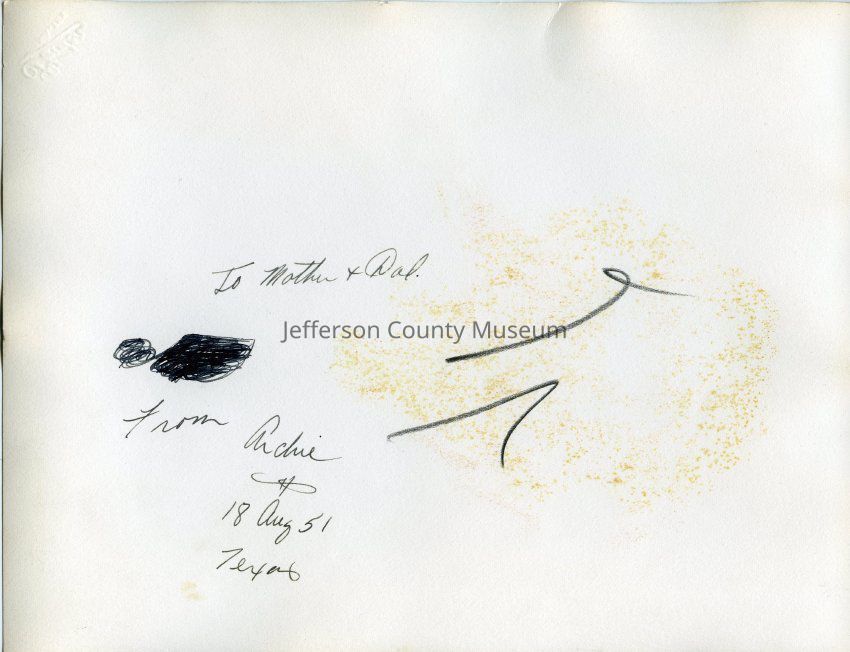 To Mother + Dad.
Jefferson County Museum
From Archie
18 Aug 51
Texas